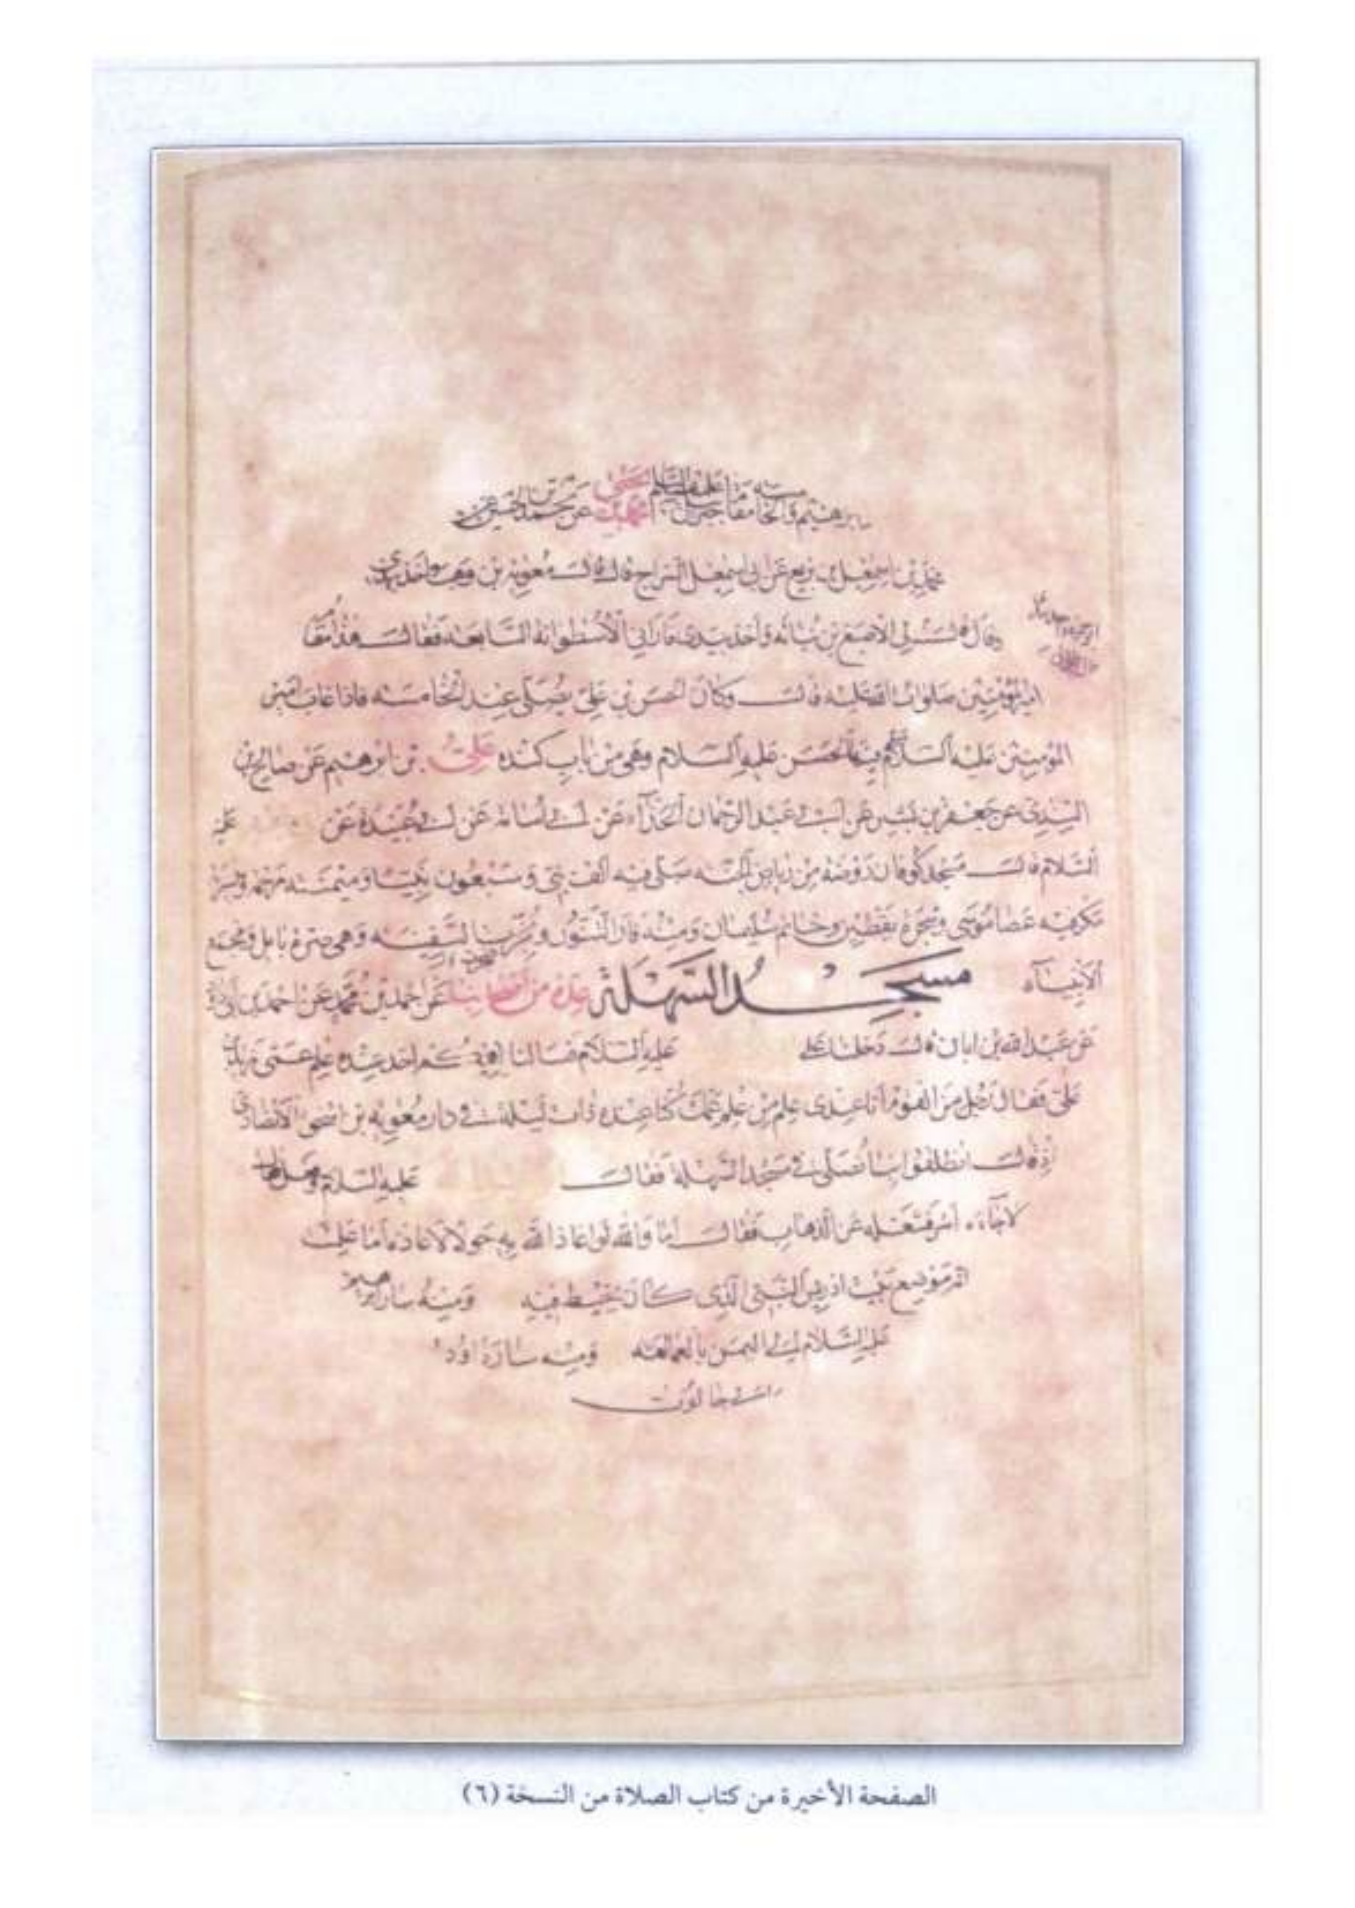 إبراهيم والخامسة مقام جبرئيل عليهما السلم محمد بن يحيى عن محمد بن الحسين عن
محمد بن اسمعيل بن بزيع عن ابى اسمعيل السراج قال قال معوية بن وهب واخذ بيدى
قال قال لى الاصبغ بن نباته وأخذ بيدى فارانى الأسطوانة السابعة فقال هذا مقام
امير المؤمنين صلوات الله عليه قال وكان الحسن بن على يصلى عند الخامسه فاذا غاب امير
المؤمنين عليه السلام صلى فيها الحسن عليه السلام وهى من باب كنده على بن ابرهيم عن صالح بن
السندى عن جعفر بن بشير عن ابى عبد الرحمان الحذاء عن ابى اسامة عن ابى عبيدة عن عليه
السلام قال مسجد كوفان روضة من رياض الجنه صلى فيه الف نبى وسبعون نبيا وميمنته رحمه وميسر
تكر فيه عصا موسى وشجرة يقطين وخاتم سليمان ومنه فار التنور ونجرت السفينه وهى صرة بابل ومجمع
الأنبياء مسجد السهلة عدة من اصحابنا عن احمد بن محمد عن احمد بن ابى داود
عن عبد الله بن ابان قال دخلنا على عليه السلام فسالنا افيكم احد عنده علم عمى زيد بن
على فقال رجل من القوم أنا عندى علم من علم عمك كنا عنده ذات ليلة فى دار معوية بن اسحق الأنصارى
اذ قال انطلقوا بنا نصلى فى مسجد السهلة فقال عليه السلام وفعل فقال
لا جاءه أمر فشغله عن الذهاب فقال أما والله لو اعاذ الله به حولا لاعاذه أما علمت
انه موضع بيت ادريس النبى الذى كان يخيط فيه ومنه سار ابرهيم
عليه السلام الى اليمن بالعمالقه ومنه سار داود
الى جالوت
الصفحة الأخيرة من كتاب الصلاة من النسخة (٦)